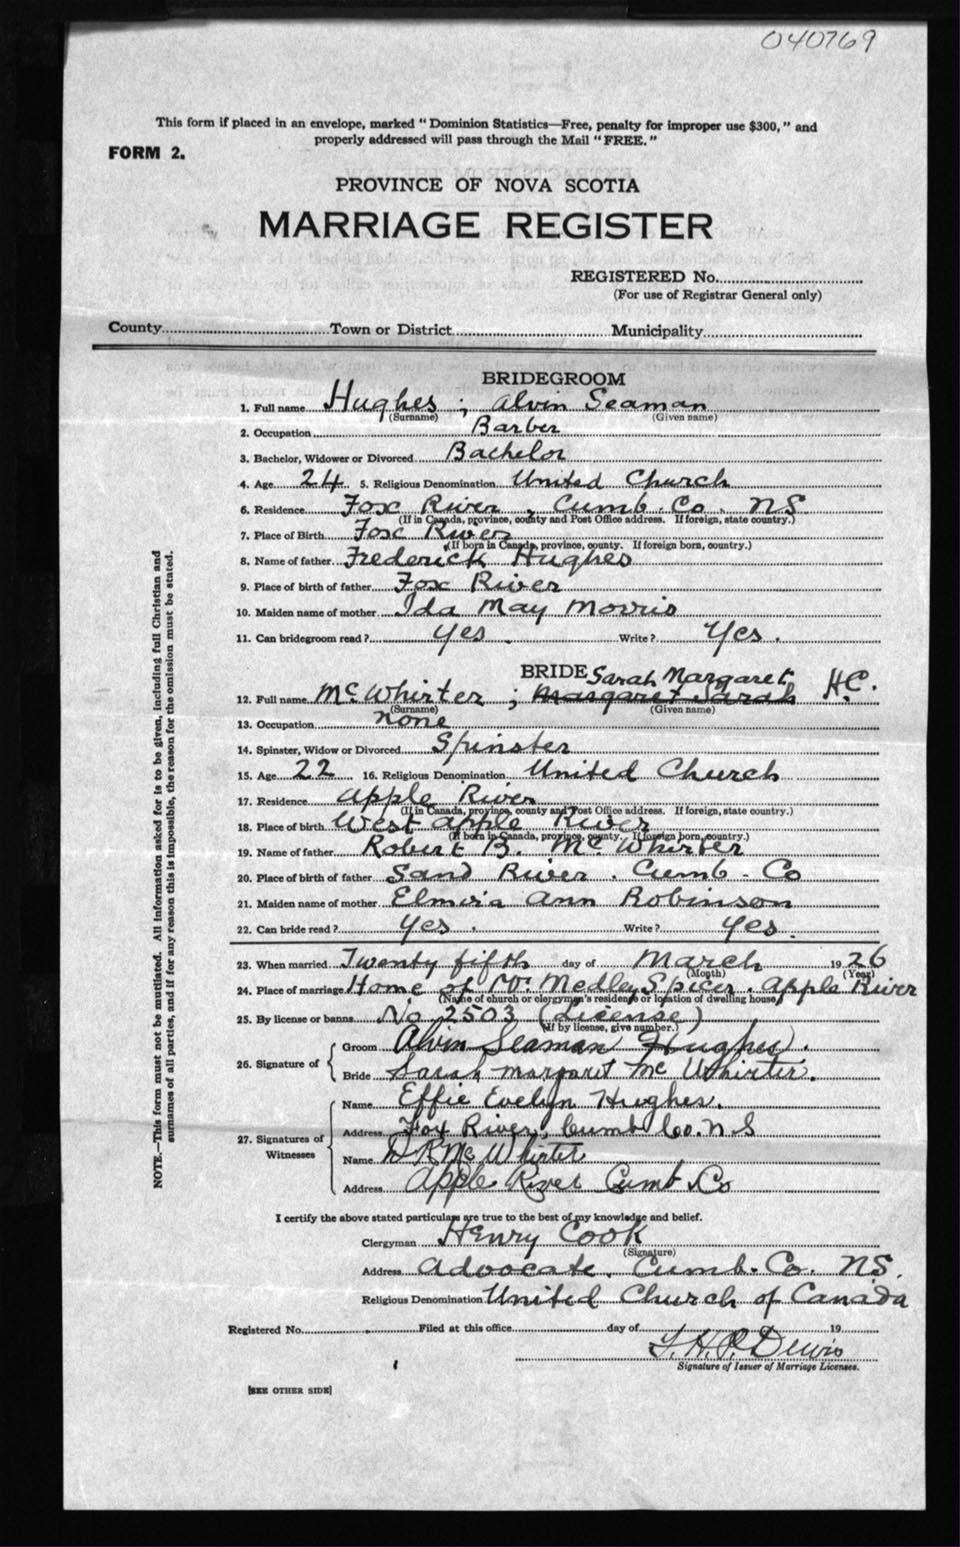 040769
This form if placed in an envelope, marked "Dominion Statistics—Free, penalty for improper use $300," and
properly addressed will pass through the Mail "FREE."
FORM 2.
PROVINCE OF NOVA SCOTIA
MARRIAGE REGISTER
REGISTERED No.
(For use of Registrar General only)
County Town or District Municipality
BRIDEGROOM
1. Full name Hughes ; Alvin Seaman
(Surname) (Given name)
2. Occupation Barber
3. Bachelor, Widower or Divorced Bachelor
4. Age 24 5. Religious Denomination United Church
6. Residence Fox River, Cumb. Co. NS
(If in Canada, province, county and Post Office address. If foreign, state country.)
7. Place of Birth Fox River
(If born in Canada, province, county. If foreign born, country.)
8. Name of father Frederick Hughes
9. Place of birth of father Fox River
10. Maiden name of mother Ida May Morris
11. Can bridegroom read? Yes. Write? Yes.
BRIDE Sarah Margaret
12. Full name McWhirter ; Margaret Sarah H.C.
(Surname) (Given name)
13. Occupation None
14. Spinster, Widow or Divorced Spinster
15. Age 22 16. Religious Denomination United Church
17. Residence Apple River
(If in Canada, province, county and Post Office address. If foreign, state country.)
18. Place of birth West Apple River
(If born in Canada, province, county. If foreign born, country.)
19. Name of father Robert B. McWhirter
20. Place of birth of father Sand River. Cumb. Co
21. Maiden name of mother Elmira Ann Robinson
22. Can bride read? Yes. Write? Yes.
23. When married Twenty fifth day of March 1926
(Month) (Year)
24. Place of marriage Home of Medley Spicer. Apple River
(Name of church or clergyman's residence or location of dwelling house)
25. By license or banns No 2503 (License)
(If by license, give number.)
26. Signature of
Groom Alvin Seaman Hughes.
Bride Sarah Margaret McWhirter.
27. Signatures of Witnesses
Name Effie Evelyn Hughes.
Address Fox River, Cumb Co. N S
Name McWhirter
Address Apple River Cumb. Co
I certify the above stated particulars are true to the best of my knowledge and belief.
Clergyman Henry Cook
(Signature)
Address Advocate. Cumb. Co. N.S.
Religious Denomination United Church of Canada
Registered No. Filed at this office day of 19
Dewis
Signature of Issuer of Marriage Licenses.
[SEE OTHER SIDE]
NOTE.—This form must not be mutilated. All information asked for is to be given, including full Christian and
surnames of all parties, and if for any reason this is impossible, the reason for the omission must be stated.